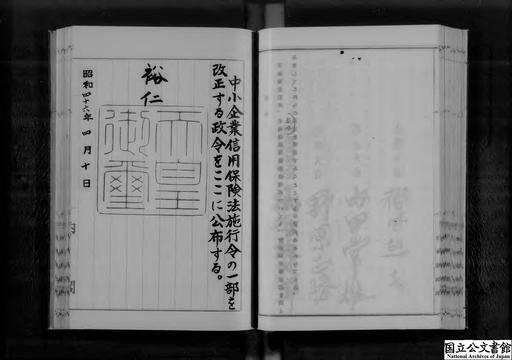 中小企業信用保険法施行令の一部を
改正する政令をここに公布する。
裕仁
天皇
御璽
昭和四十六年四月十日
国立公文書館
National Archives of Japan